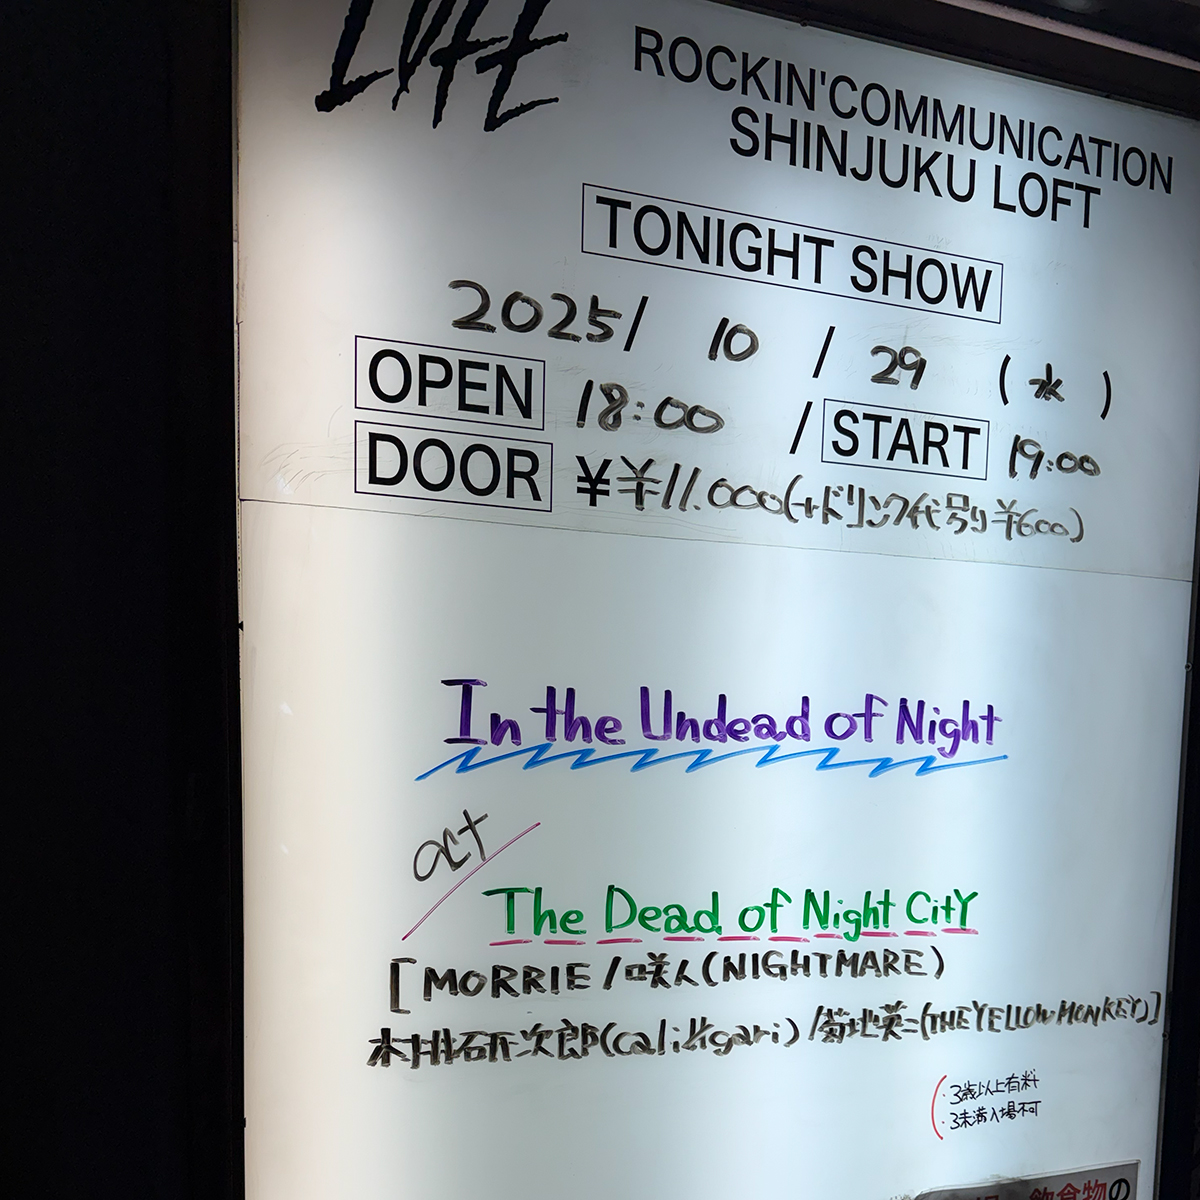 LOFT
ROCKIN'COMMUNICATION
SHINJUKU LOFT
TONIGHT SHOW
2025/ 10 / 29 (水)
OPEN 18:00 / START 19:00
DOOR ¥¥11.000(+ドリンク代別¥600)
In the Undead of Night
act
The Dead of Night City
[MORRIE/咲人(NIGHTMARE)
村井研次郎(cali≠gari)/菊地英二(THE YELLOW MONKEY)]
・3歳以上有料
・3未満入場不可
飲食物の